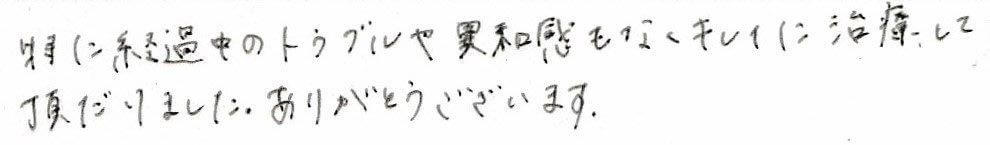 特に経過中のトラブルや異和感もなくキレイに治療して
頂だりました。ありがとうございます。